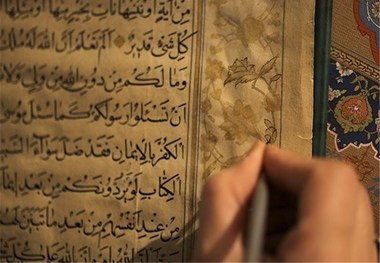 مِنْ اٰيَةٍ اَوْ نُنْسِهَا نَأْتِ بِخَيْرٍ مِنْهَا اَوْ مِثْلِهَا
كُلِّ شَىْءٍ قَدِيرٌ اَلَمْ تَعْلَمْ اَنَّ اللّٰهَ لَهُ مُلْكُ
وَمَا لَكُمْ مِنْ دُونِ اللّٰهِ مِنْ وَلِىٍّ وَلَا
اَنْ تَسْئَلُوا رَسُولَكُمْ كَمَا سُئِلَ مُوسٰى
الْكُفْرَ بِالْاِيمَانِ فَقَدْ ضَلَّ سَوَآءَ
الْكِتَابِ لَوْ يَرُدُّونَكُمْ مِنْ بَعْدِ
مِنْ عِنْدِ اَنْفُسِهِمْ مِنْ بَعْدِ مَا تَبَيَّنَ
اِنَّ اللّٰهَ عَلٰى كُلِّ